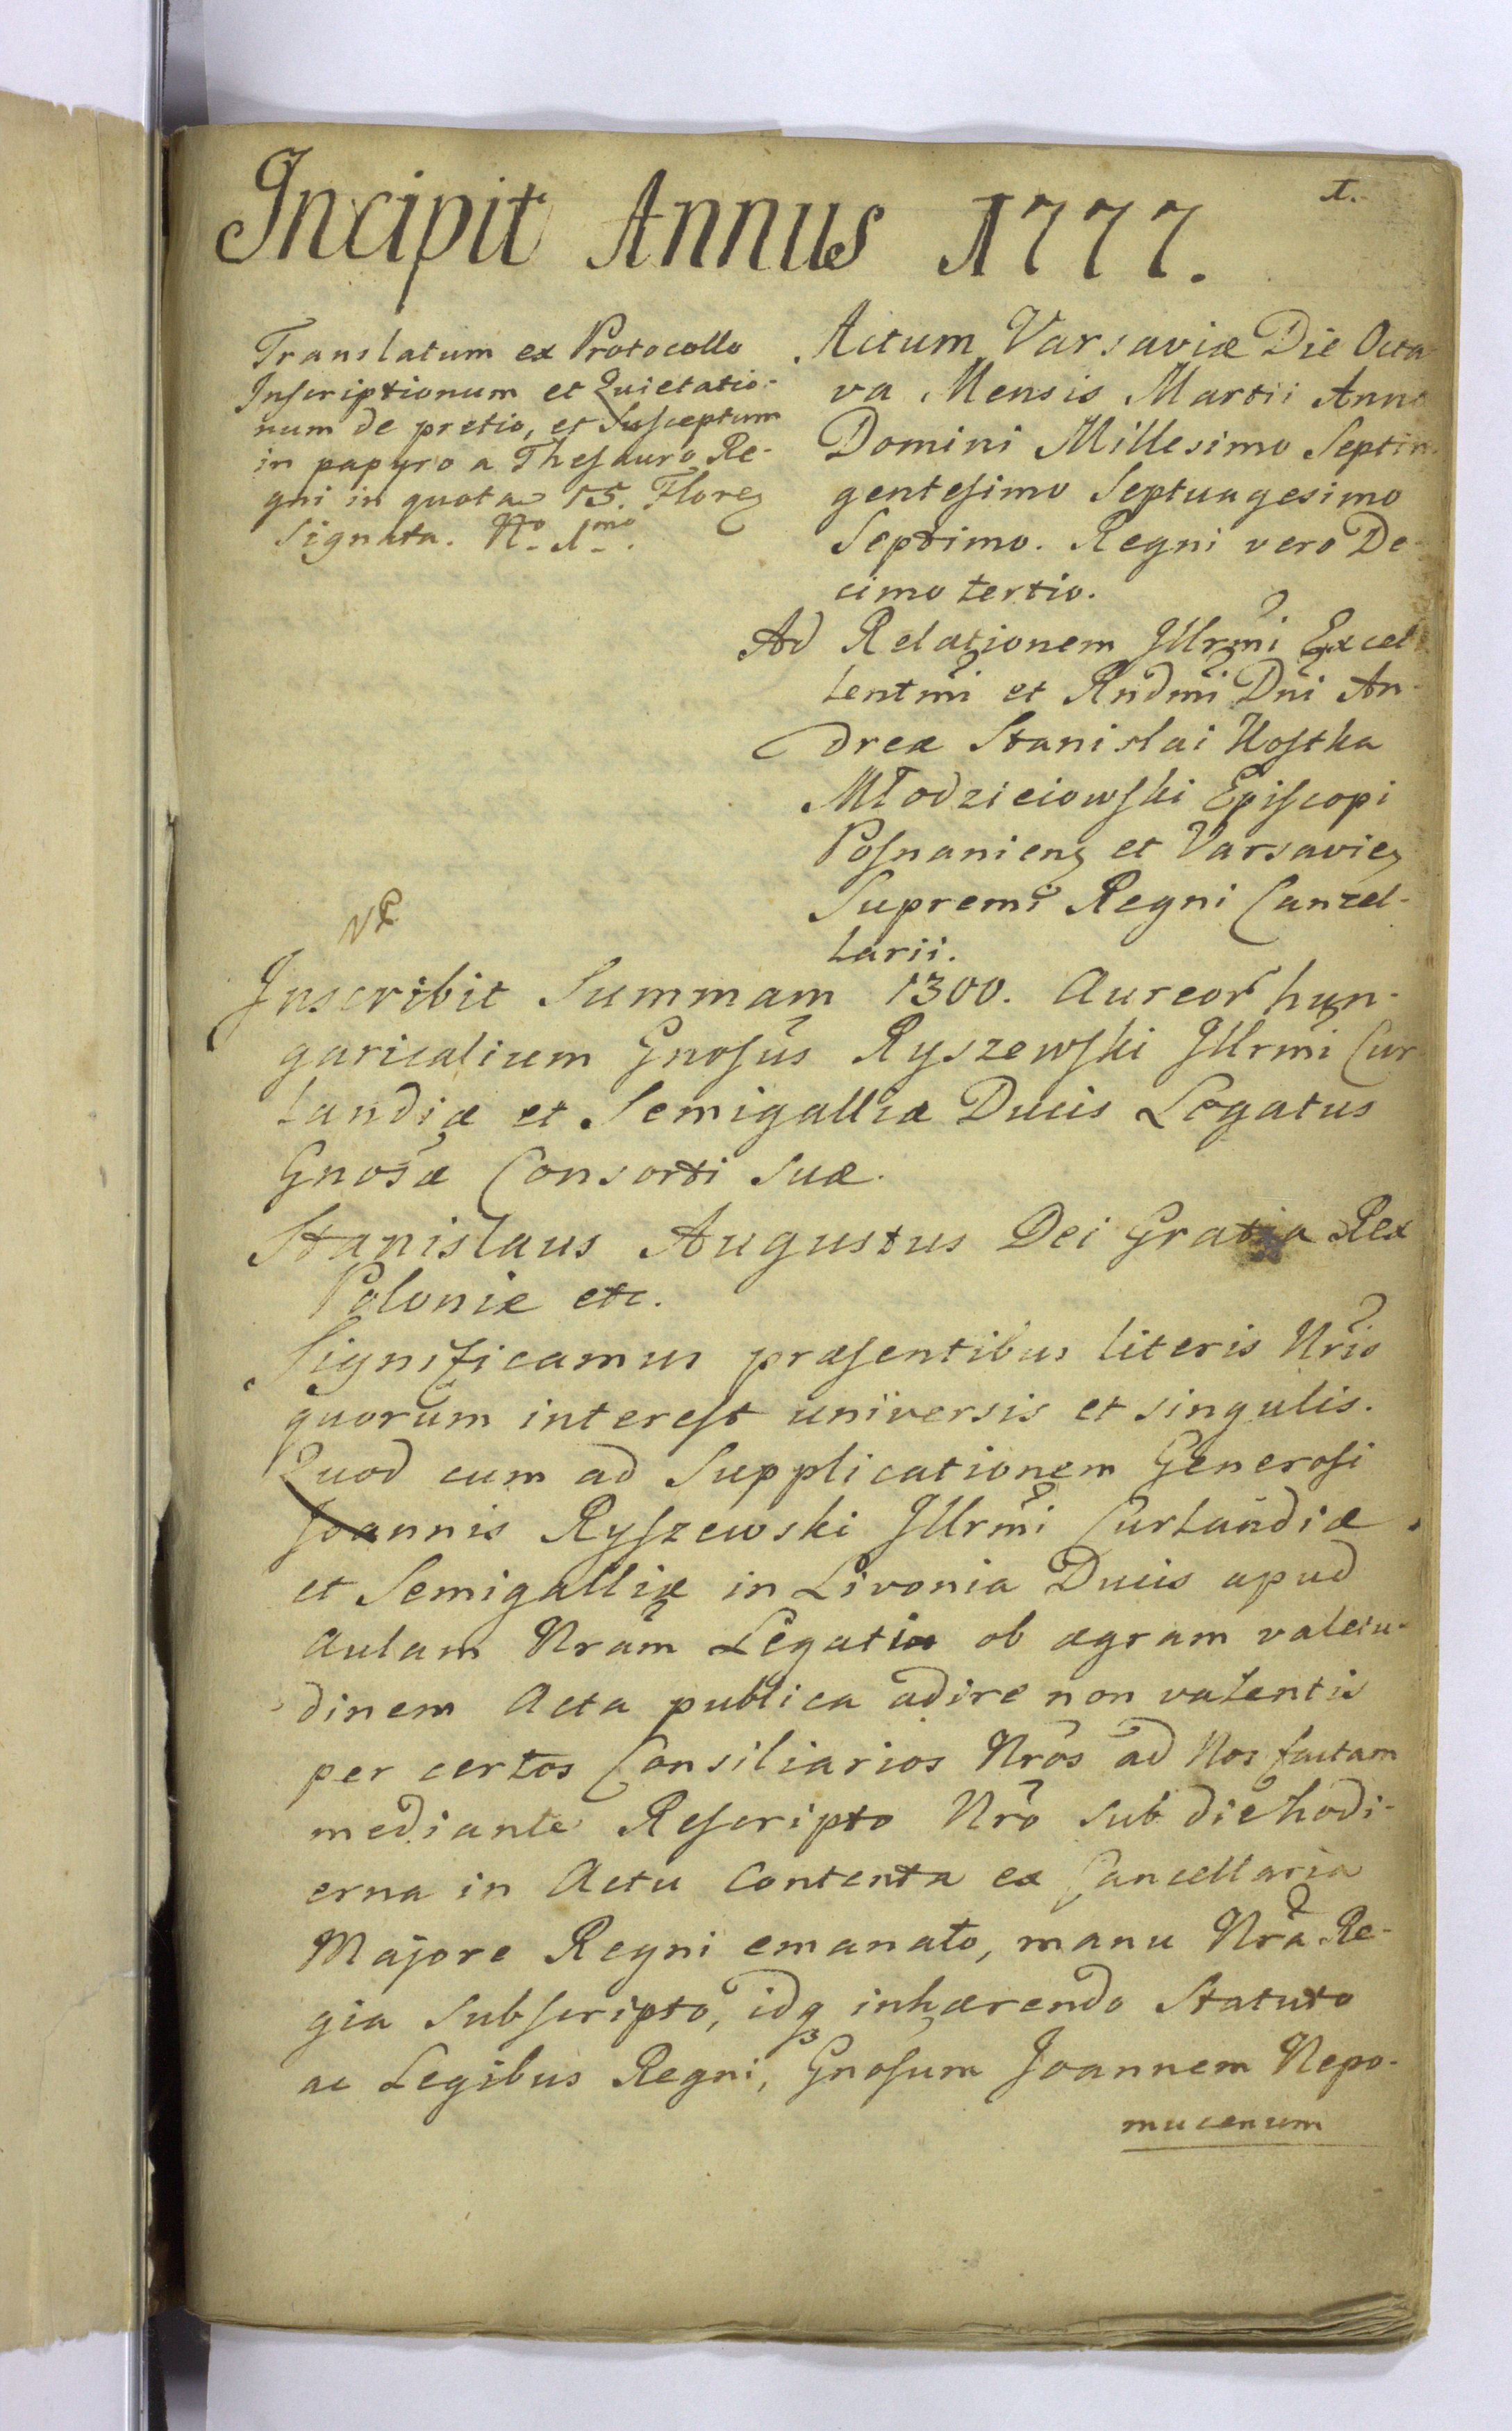 1.
Incipit Annus 1777.
Translatum ex Protocollo
Inscriptionum et Quietatio-
num de pretio, et Susceptum
in papyro a Thesauro Re-
gni in quota 15. Floren
Signata. No. 1mo.
Actum Varsaviæ Die Octa
va Mensis Martii Anno
Domini Millesimo Septin
gentesimo Septuagesimo
Septimo. Regni vero De-
cimo tertio.
Ad Relationem Jllrmi Excel
lentmi et Rndmi Dni An-
dreæ Stanislai Kostka
Młodzieiowski Episcopi
Posnanien et Varsavien
Supremi Regni Cancel-
larii.
Inscribit Summam 1300. Aureor hun-
garicalium Gnosus Ryszewski Jllrmi Cur
landiæ et Semigalliæ Ducis Legatus
Gnosæ Consorti suæ.
Stanislaus Augustus Dei Gratia Rex
Poloniæ etc.
Significamus præsentibus literis Nris
quorum interest universis et singulis.
Quod cum ad Supplicationem Generosi
Joannis Ryszewski Jllrmi Curlandiæ
et Semigalliæ in Livonia Ducis apud
Aulam Nram Legati ob ægram valetu-
dinem Acta publica adire non valentis
per certos Consiliarios Nros ad Nos factam
mediante Rescripto Nro sub die hodi-
erna in Actu Contenta ex Cancellaria
Majore Regni emanato, manu Nra Re-
gia subscripto, idq inhærendo Statuto
ac Legibus Regni, Gnosum Joannem Nepo-
mucenum